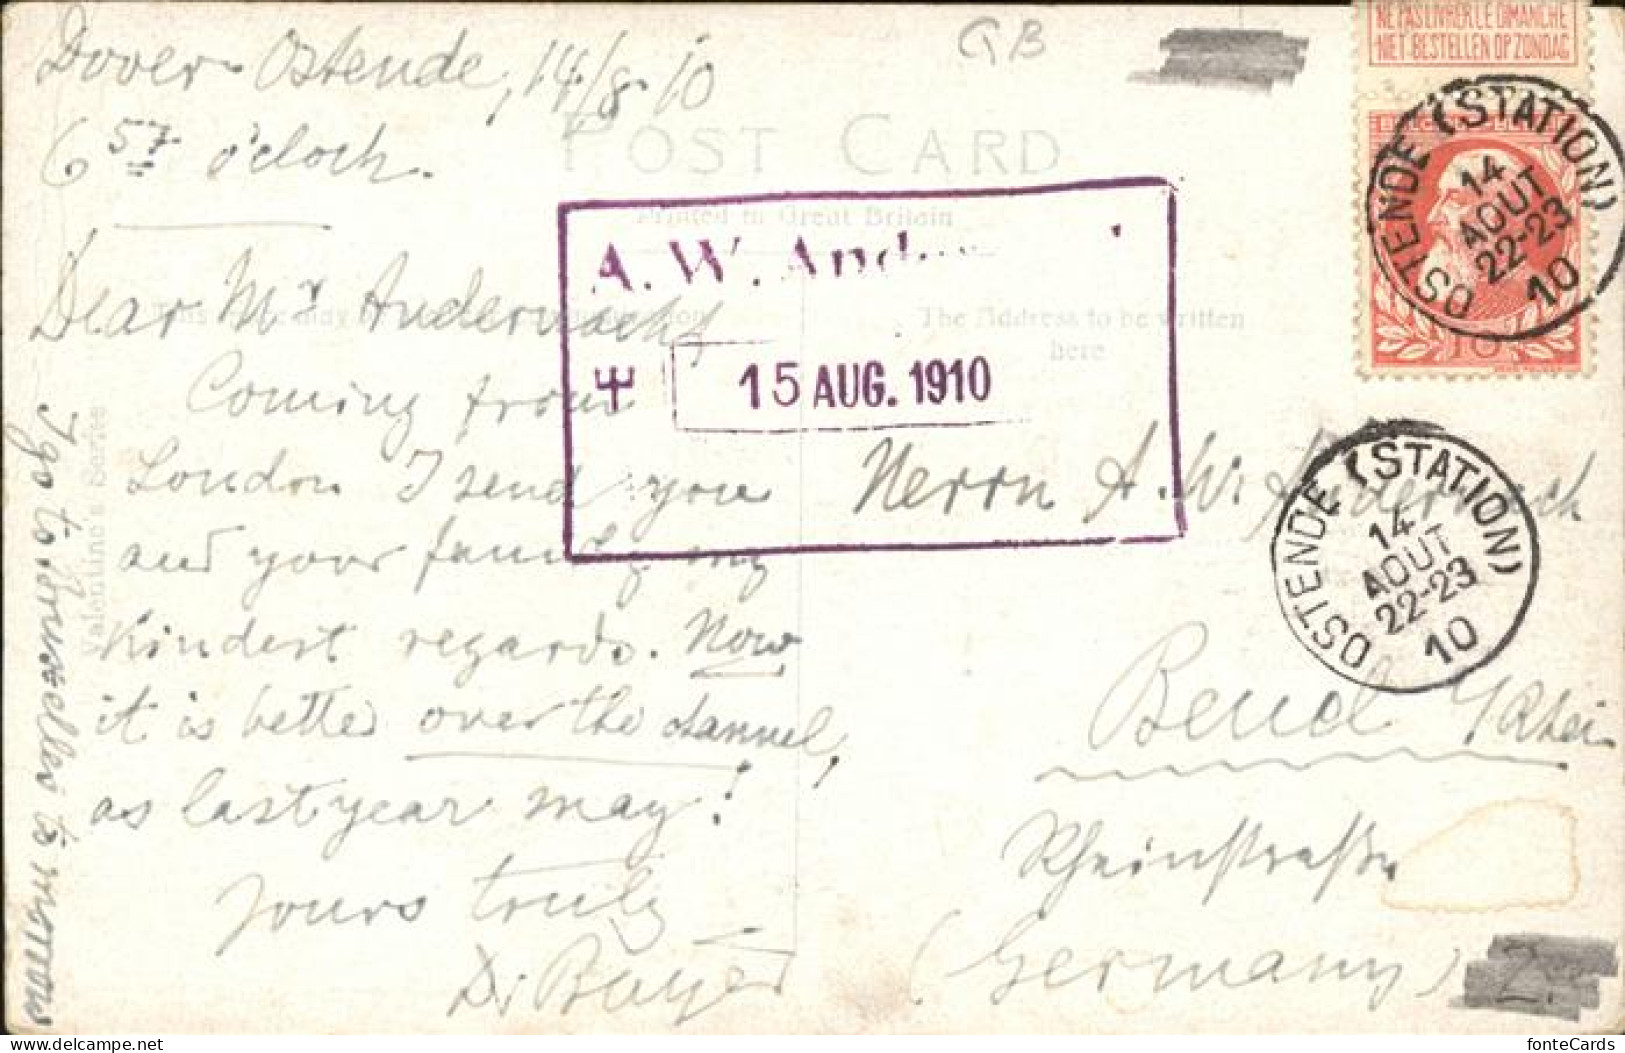 Dover-Ostende, 14/8 10
6 57 o'clock.
Dear Mr Andernach,
Coming from
London I send you
and your family my
kindest regards. Now
it is better over the channel,
as last year may!
Yours truly
Dr Bayer
I go to Brusselles to morrow
Valentine's Series
GB
POST CARD
Printed in Great Britain
The Address to be written
here
A. W. And
15 AUG. 1910
NE PAS LIVRER LE DIMANCHE
NIET BESTELLEN OP ZONDAG
10
OSTENDE (STATION)
14
AOUT
22-23
10
Herrn A. W. Andernach
OSTENDE (STATION)
14
AOUT
22-23
10
Beuel /Rhein
Rheinstraße
(Germany)
2.
delcampe.net
fonteCards